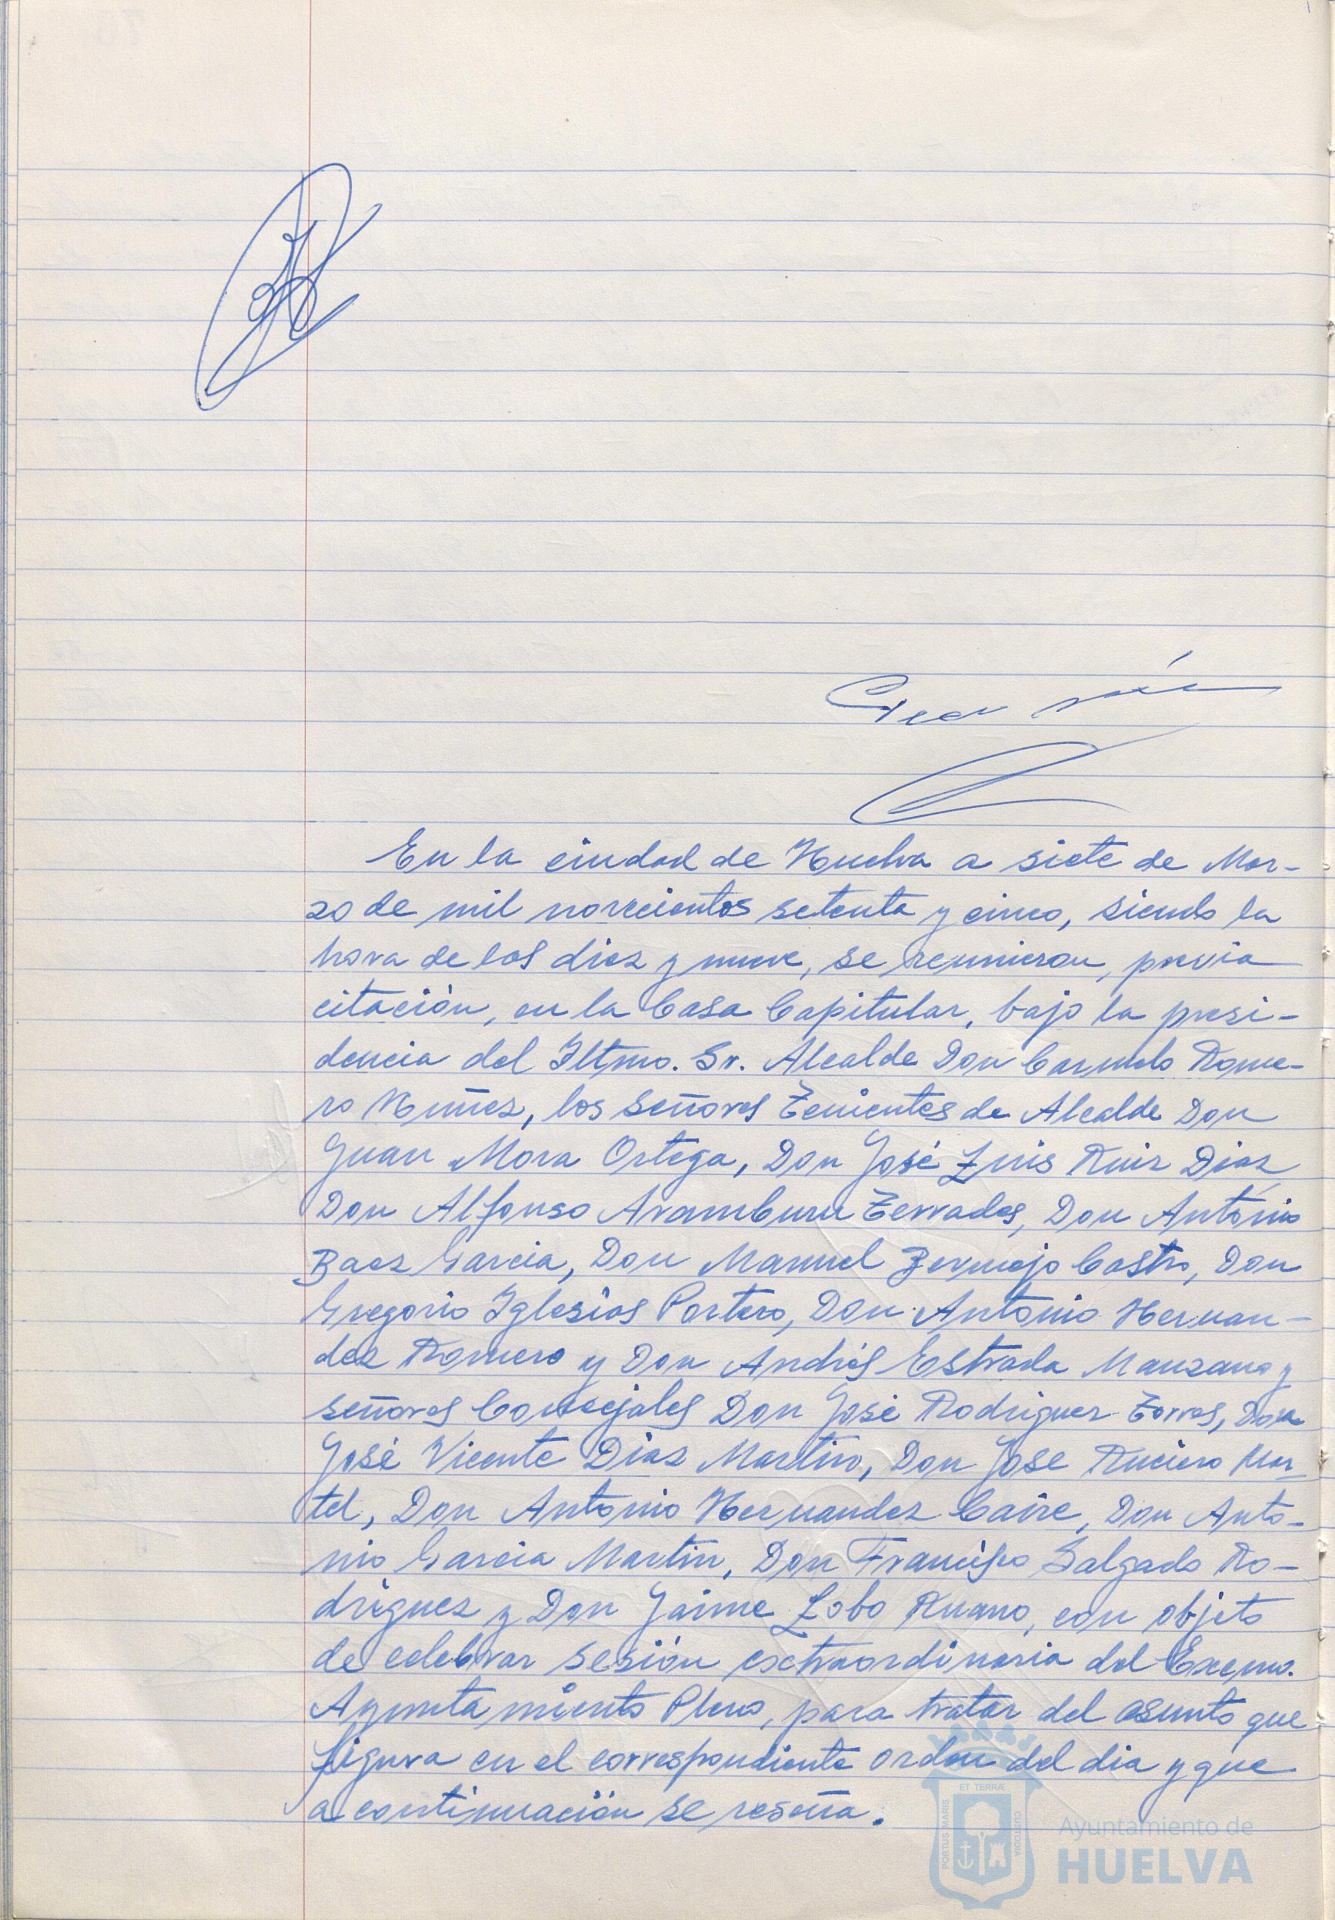 En la ciudad de Huelva a siete de Mar-
zo de mil novecientos setenta y cinco, siendo la
hora de las diez y nueve, se reunieron, previa
citación, en la Casa Capitular, bajo la presi-
dencia del Iltmo. Sr. Alcalde Don Carmelo Rome-
ro Nuñez, los señores Tenientes de Alcalde Don
Juan Mora Ortega, Don José Luis Ruiz Diaz,
Don Alfonso Aramburu Terrades, Don Antonio
Baez Garcia, Don Manuel Bermejo Castro, Don
Gregorio Iglesias Portero, Don Antonio Hernan-
dez Romero y Don Andrés Estrada Manzano y
señores Concejales Don José Rodriguez Torres, Don
José Vicente Diaz Martin, Don Jose Ruciero Mar-
tel, Don Antonio Hernandez Caire, Don Anto-
nio Garcia Martin, Don Francisco Salgado Ro-
driguez y Don Jaime Lobo Ruano, con objeto
de celebrar sesión extraordinaria del Excmo.
Ayuntamiento Pleno, para tratar del asunto que
figura en el correspondiente orden del dia y que
a continuación se reseña.
PORTUS MARIS
ET TERRÆ
CUSTODIA
Ayuntamiento de
HUELVA